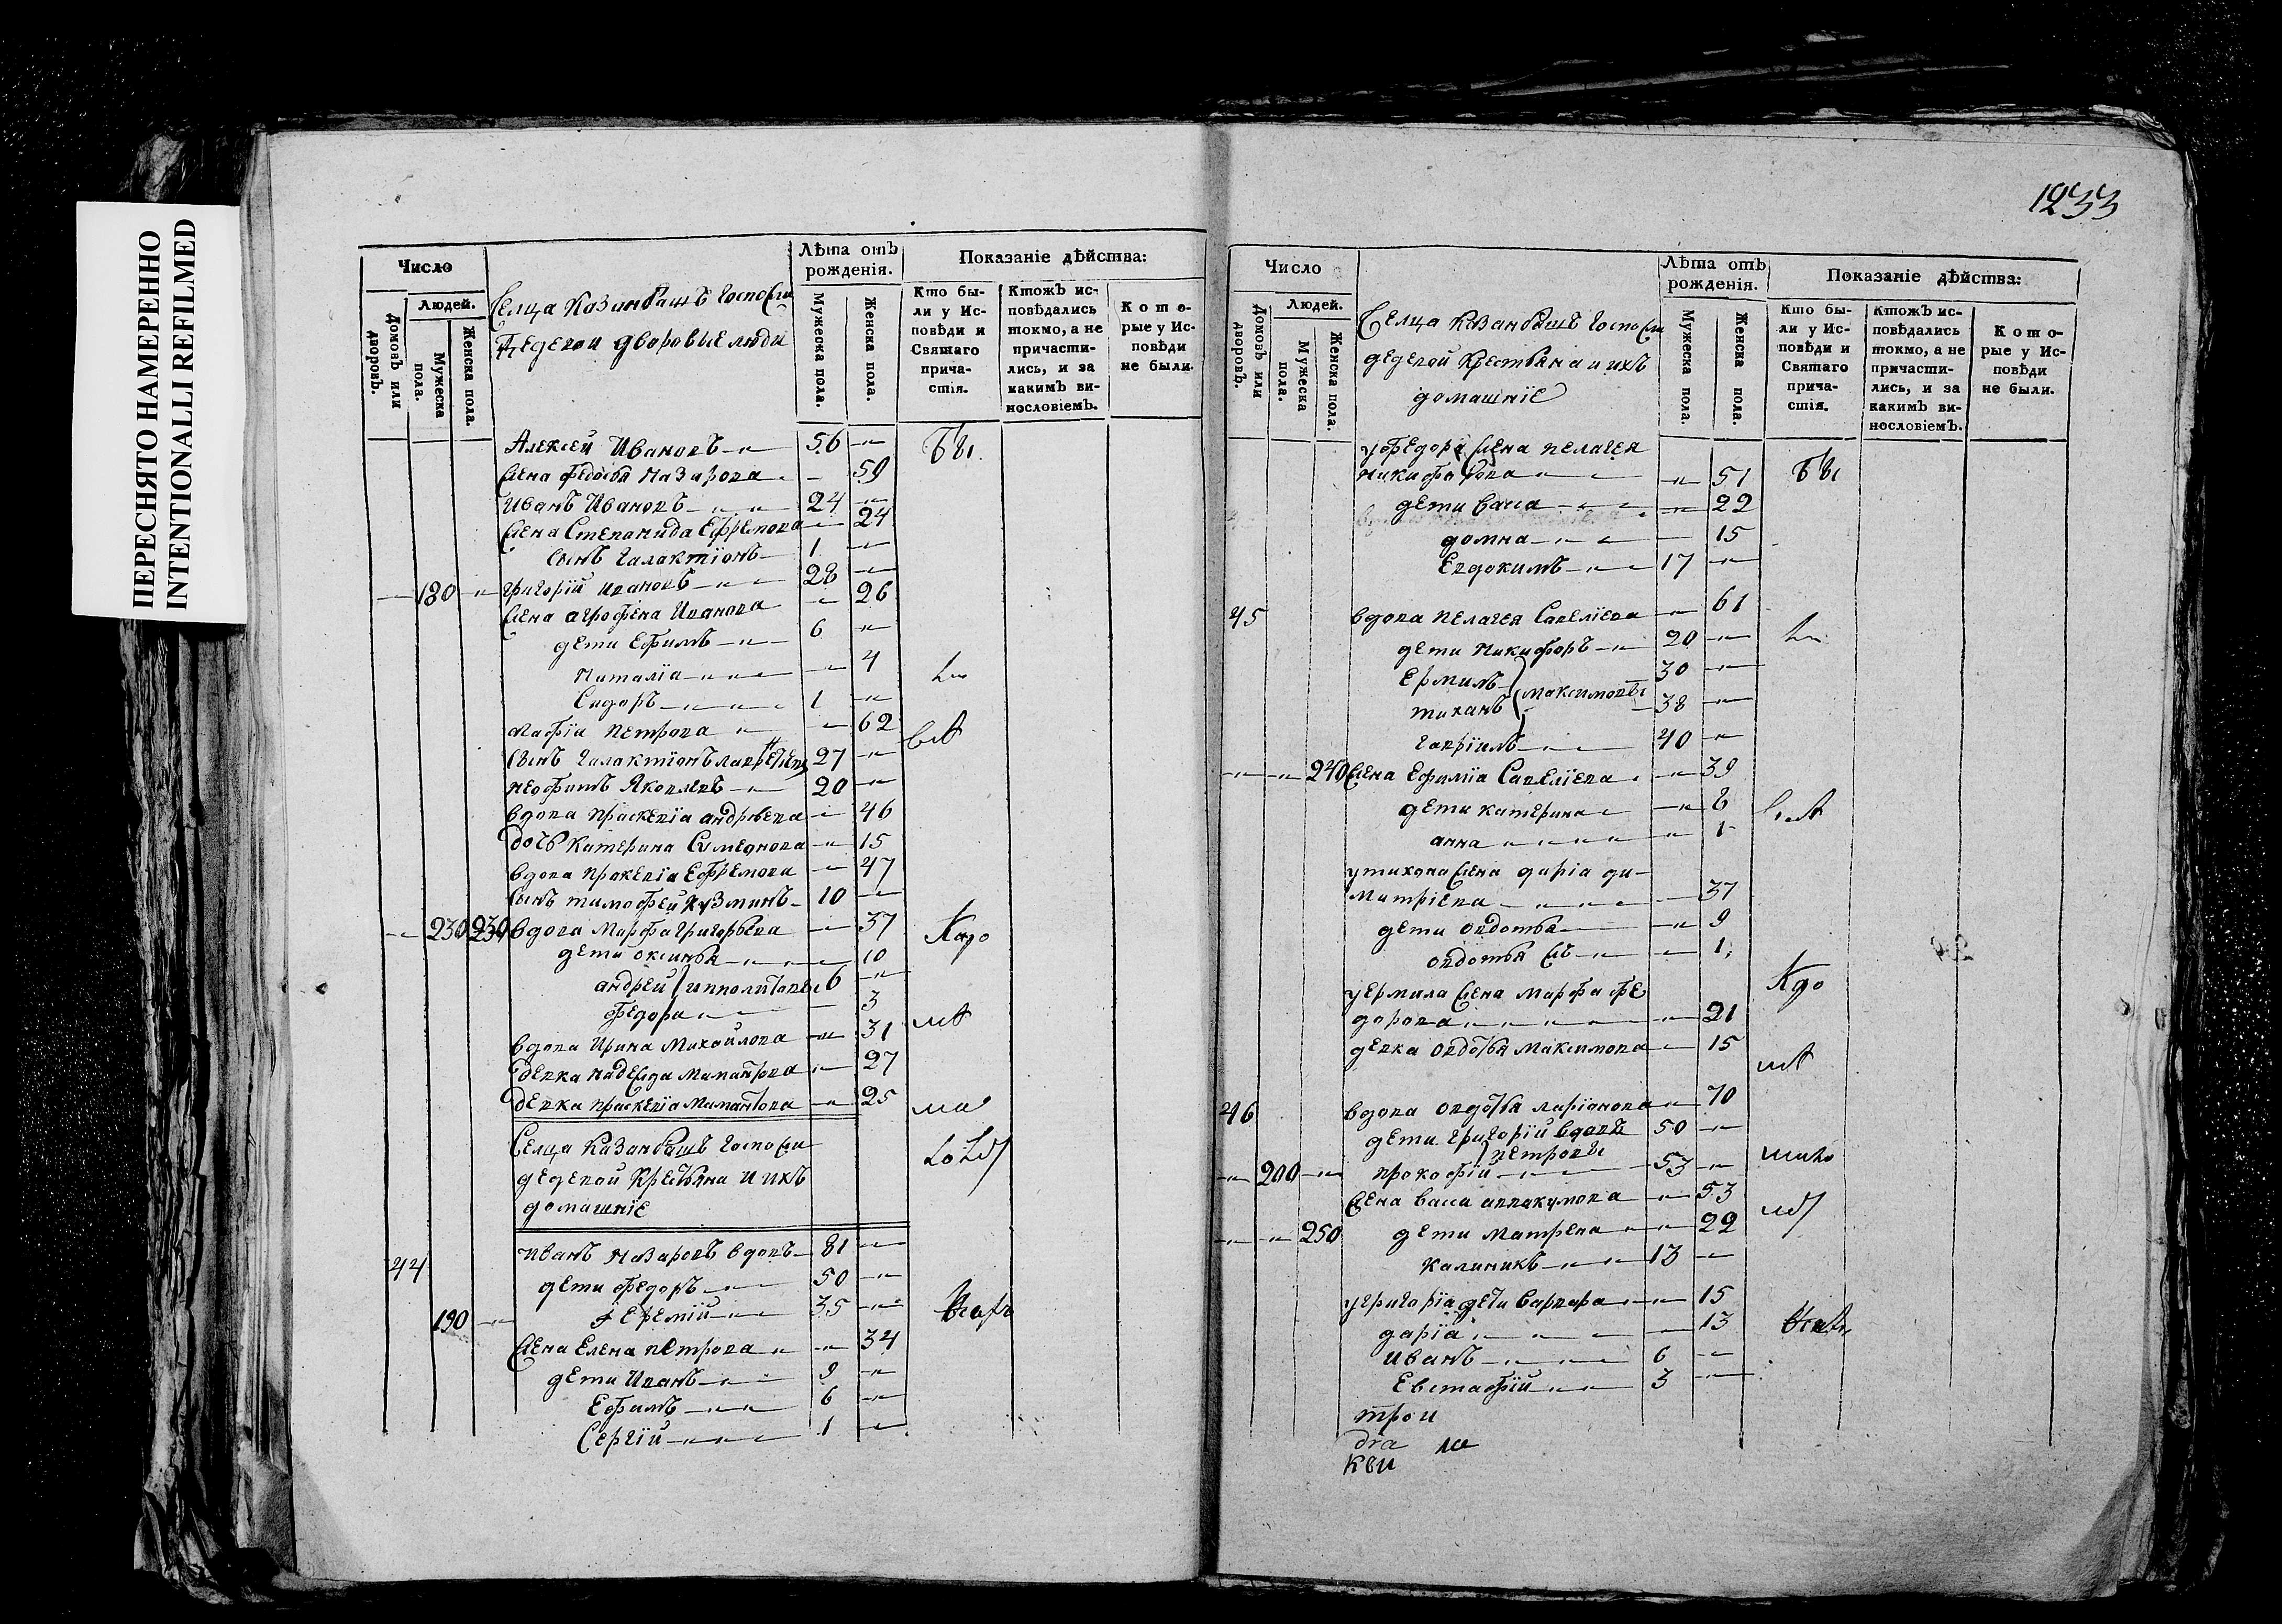 ПЕРЕСНЯТО НАМЕРЕННО
INTENTIONALLI REFILMED
1233
Число
Людей.
Домовъ или дворовъ.
Мужеска пола.
Женска пола.
Селца Казанбашъ госпожи
дворовые люди
Лѣта отъ рожденія.
Мужеска пола.
Женска пола.
Показаніе дѣйства:
Кто бы-
ли у Ис-
повѣди и
Святаго
прича-
стія.
Ктожъ ис-
повѣдались
токмо, а не
причасти-
лись, и за
какимъ ви-
нословіемъ.
Кото-
рые у Ис-
повѣди
не были.
Алексей Ивановъ 56
жена Федосья Назарова 59
Иванъ Ивановъ 24
жена Степанида Ефремова 24
сынъ Галактіонъ 1
180 Григорій Ивановъ 28
жена Агрофена Иванова 26
дети Ефимъ 6
Наталіа 4
Сидоръ 1
Петрова 62
сынъ Галактіонъ 27
Неофитъ Яковлевъ 20
вдова Праскевіа Андрѣева 46
дочь Катерина 15
вдова Пракевіа Ефремова 47
сынъ Тимофей Кузминъ 10
230 вдова Марфа Григорьева 37
дети Оксинья 10
Андрей Ипполитовы 6
Федора 3
вдова Ирина Михайлова 31
девка Надежда Мамантова 27
девка Праскевіа Мамантова 25
Селца Казанбашъ госпожи
дедевой крестьяна и ихъ
домашніе
44 Иванъ Назаровъ вдовъ 81
дети Федоръ 50
190 Іеремій 35
жена Елена Петрова 34
дети Иванъ 9
Ефимъ 6
Сергій 1
Число
Людей.
Домовъ или дворовъ.
Мужеска пола.
Женска пола.
Селца Казанбашъ госпожи
дедевой крестьяна и ихъ
домашніе
Лѣта отъ рожденія.
Мужеска пола.
Женска пола.
Показаніе дѣйства:
Кто бы-
ли у Ис-
повѣди и
Святаго
прича-
стія.
Ктожъ ис-
повѣдались
токмо, а не
причасти-
лись, и за
какимъ ви-
нословіемъ.
Кото-
рые у Ис-
повѣди
не были.
у Федора жена Пелагея
Никифорова 51
дети Васса 22
Домна 15
Евдокимъ 17
45 вдова Пелагея Савеліева 61
дети Никифоръ 20
Ермилъ 30
Максимовы
Тиханъ 38
Гавріилъ 40
240 жена Ефиміа Савеліева 39
дети Катерина
Анна 1
у Тихона жена Даріа Ди-
митріева 37
дети Овдотья 9
Овдотья ж 1
у Ермила жена Марфа Фе
дорова 21
девка Овдотья Максимова 15
46 вдова Овдотья Ларіонова 70
дети Григорій вдовъ 50
Петровы
200 Прокофій 53
жена Васса Аввакумова 53
250 дети Матрена 22
Калиникъ 13
у Григоріа дети Варвара 15
Даріа 13
Иванъ 6
Евстафій 3
трои